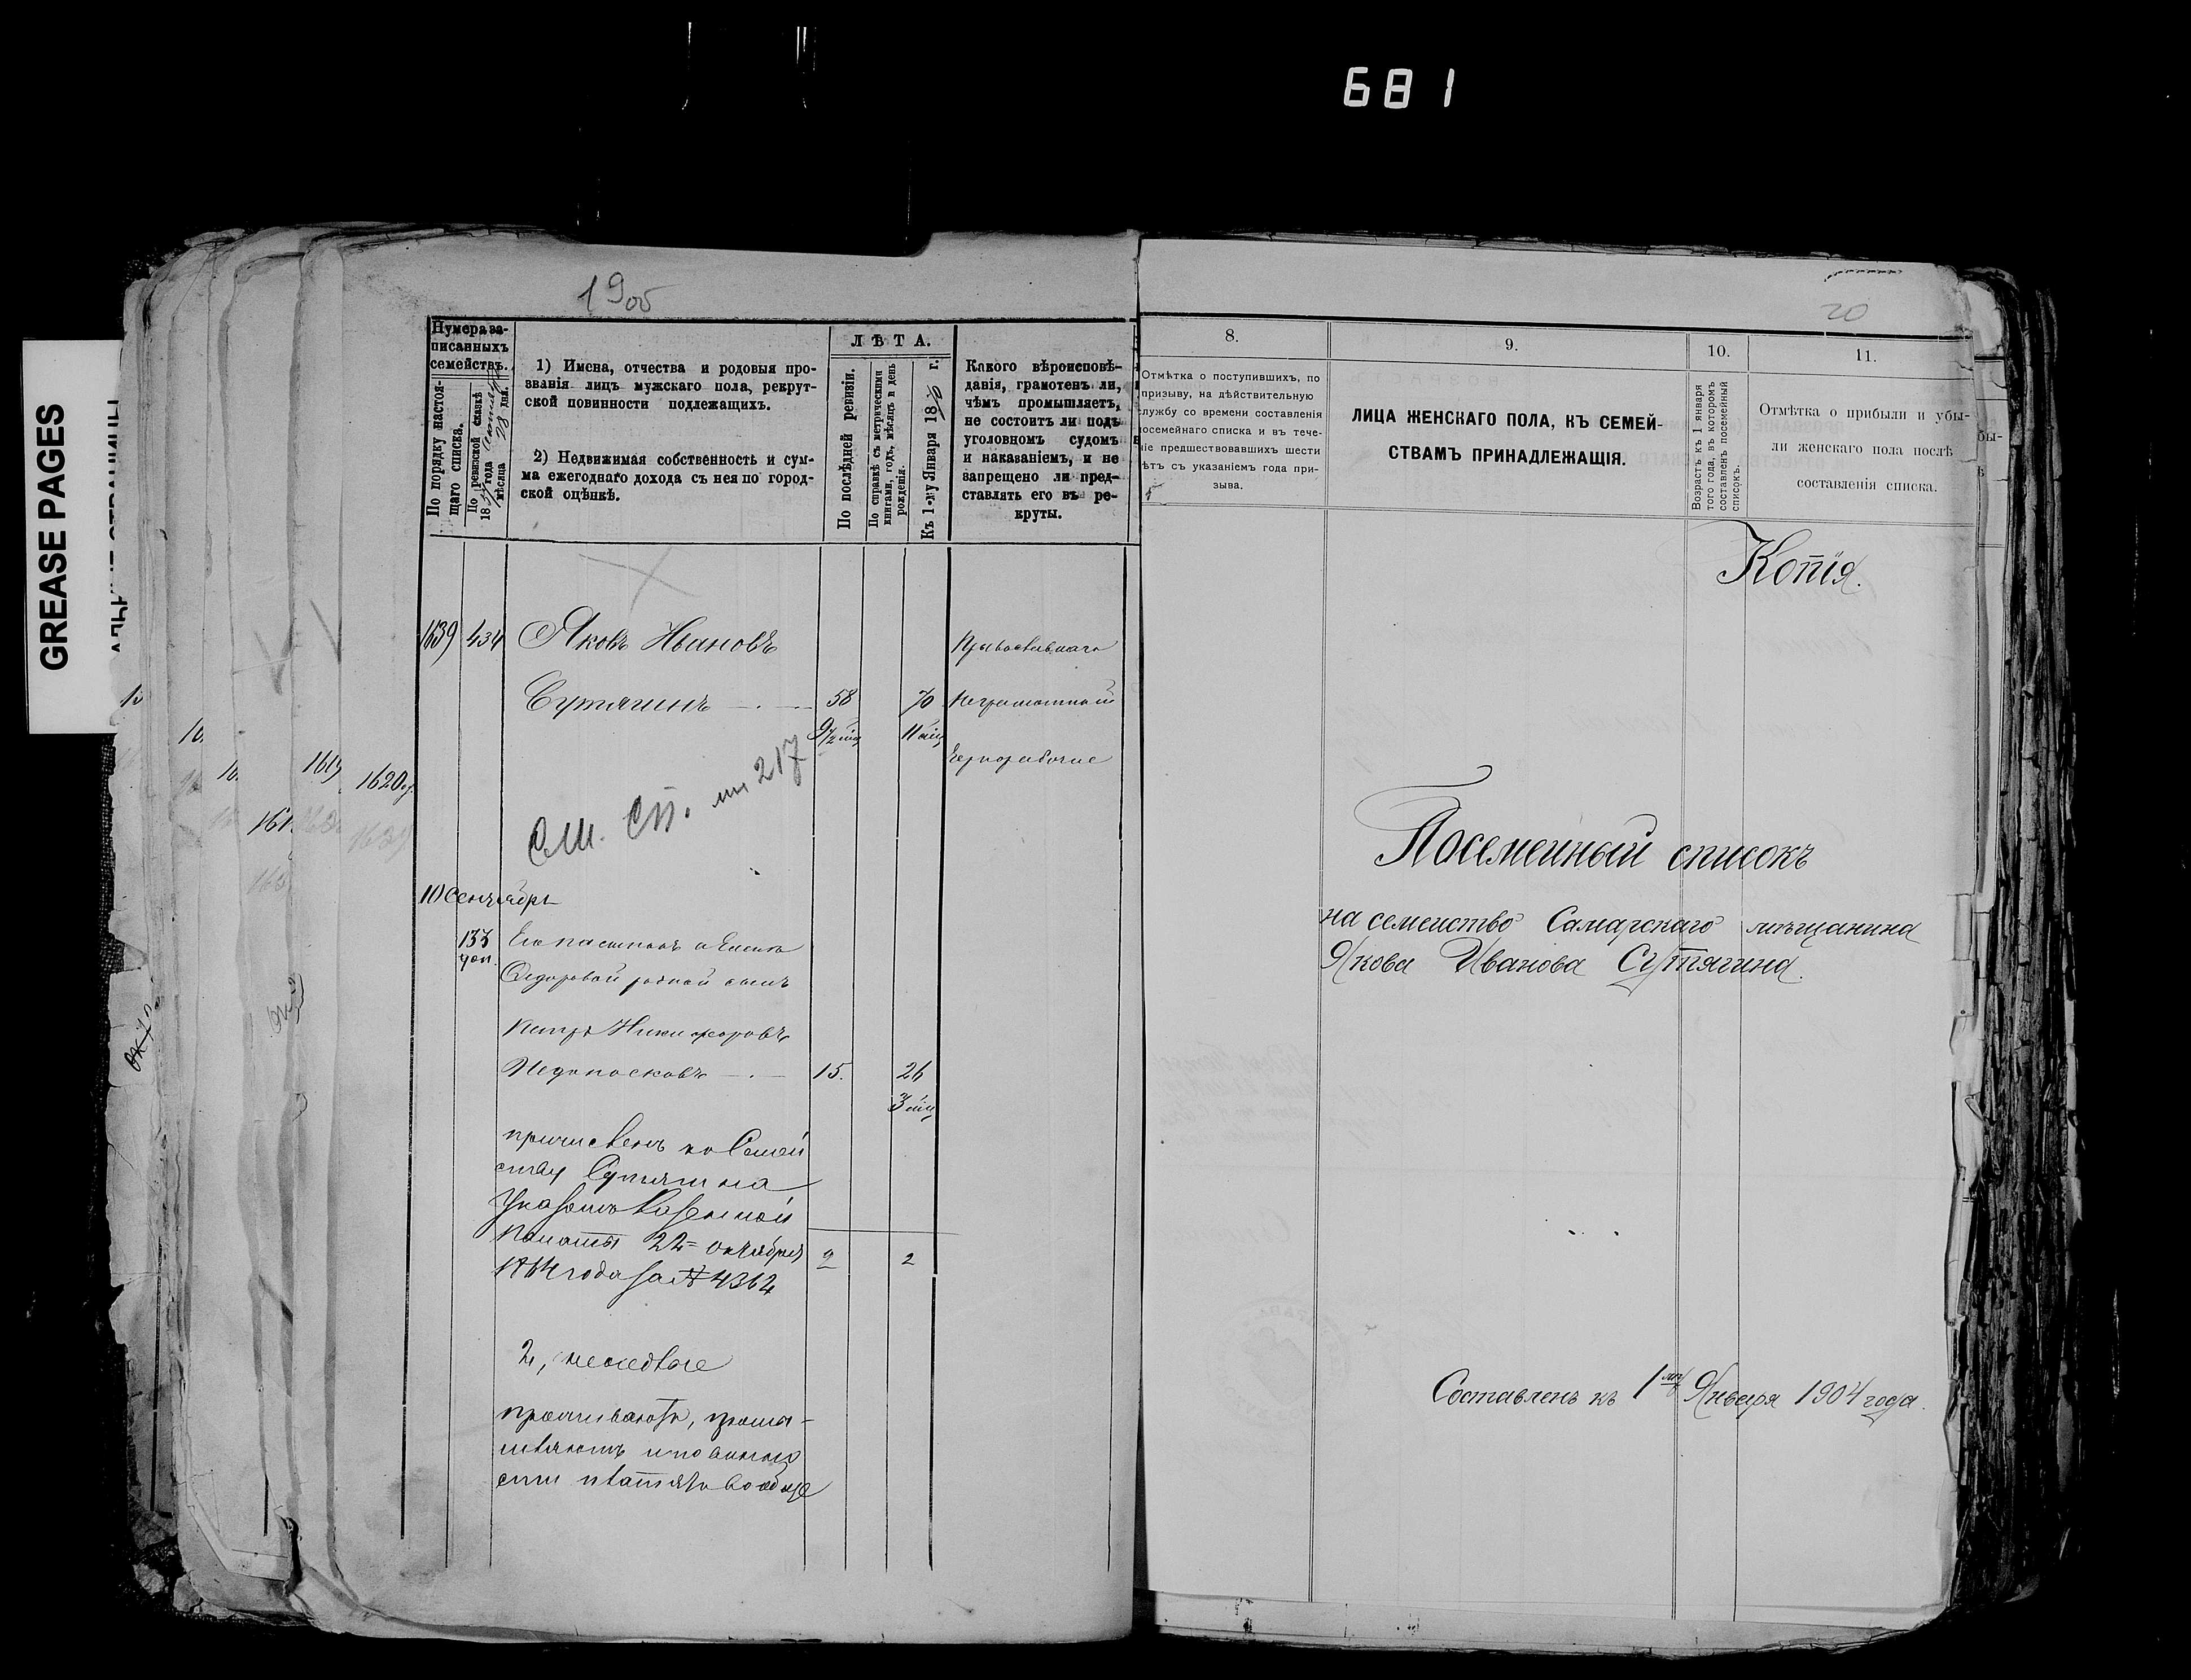 681
GREASE PAGES
1900
20
Нумера за-
писанныхъ
семействъ.
По порядку настоя-
щаго списка.
По ревизской сказкѣ
18 года
мѣсяца 28 дня.
1) Имена, отчества и родовыя про-
званія лицъ мужскаго пола, рекрут-
ской повинности подлежащихъ.
2) Недвижимая собственность и сум-
ма ежегоднаго дохода съ нея по город-
ской оцѣнкѣ.
ЛѢТА.
По послѣдней ревизіи.
По справкѣ съ метрическими
книгами, годъ, мѣсяцъ и день
рожденія.
Къ 1-му Января 1870 г.
Какого вѣроисповѣ-
данія, грамотенъ ли,
чѣмъ промышляетъ,
не состоитъ ли подъ
уголовномъ судомъ
и наказаніемъ, и не
запрещено ли пред-
ставлять его въ ре-
круты.
1639 434 Яковъ Ивановъ
Сутягинъ 58 70
9½ мѣц 11 мѣц
Православнаго
Неграмотный
Чернорабочіе
См. СП. 217
10 Сентябрь
133 Его пасынокъ
доп.
Ѳедоровой родной сынъ
Петръ Никифоровъ
Недоносковъ 15. 26
3 мѣц
причисленъ ко Семей
ству Сутягина
Указомъ Казенной
Палаты 22 октября
1864 года за № 4364
2 2
2, неимѣютъ
проживаютъ, промы-
шляютъ и повинно
сти платятъ вообще
1619
1620
161
8.
Отмѣтка о поступившихъ, по
призыву, на дѣйствительную
службу со времени составленія
посемейнаго списка и въ тече-
ніе предшествовавшихъ шести
лѣтъ съ указаніемъ года при-
зыва.
9.
ЛИЦА ЖЕНСКАГО ПОЛА, КЪ СЕМЕЙ-
СТВАМЪ ПРИНАДЛЕЖАЩІЯ.
10.
Возрастъ къ 1 января
того года, въ которомъ
составленъ посемейный
списокъ.
11.
Отмѣтка о прибыли и убы-
ли женскаго пола послѣ
составленія списка.
Копія.
Посемейный списокъ
на семейство Самарскаго мѣщанина
Якова Иванова Сутягина.
Составленъ къ 1му Января 1904 года.